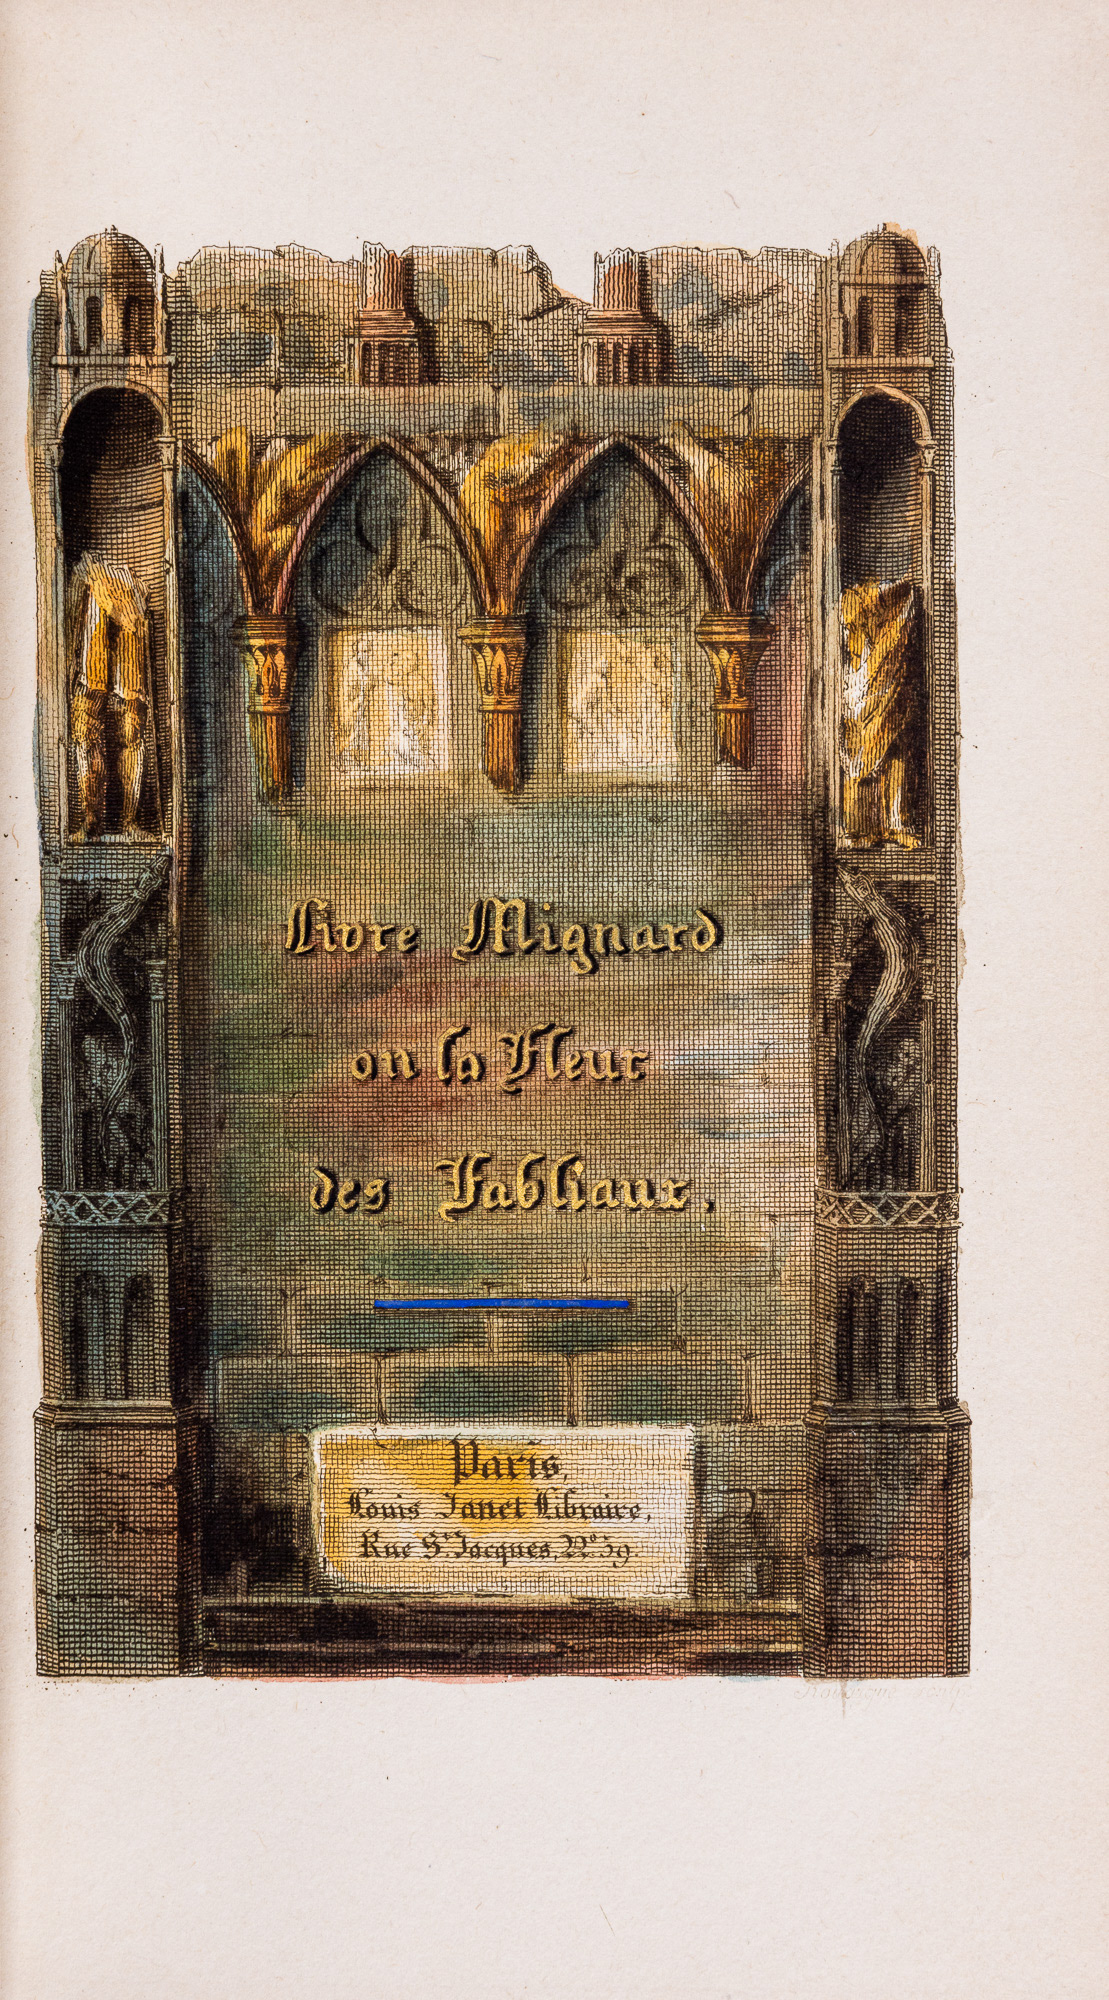 Livre Mignard
ou la Fleur
des Fabliaux.
Paris,
Louis Janet Libraire,
Rue St. Jacques, No. 59.